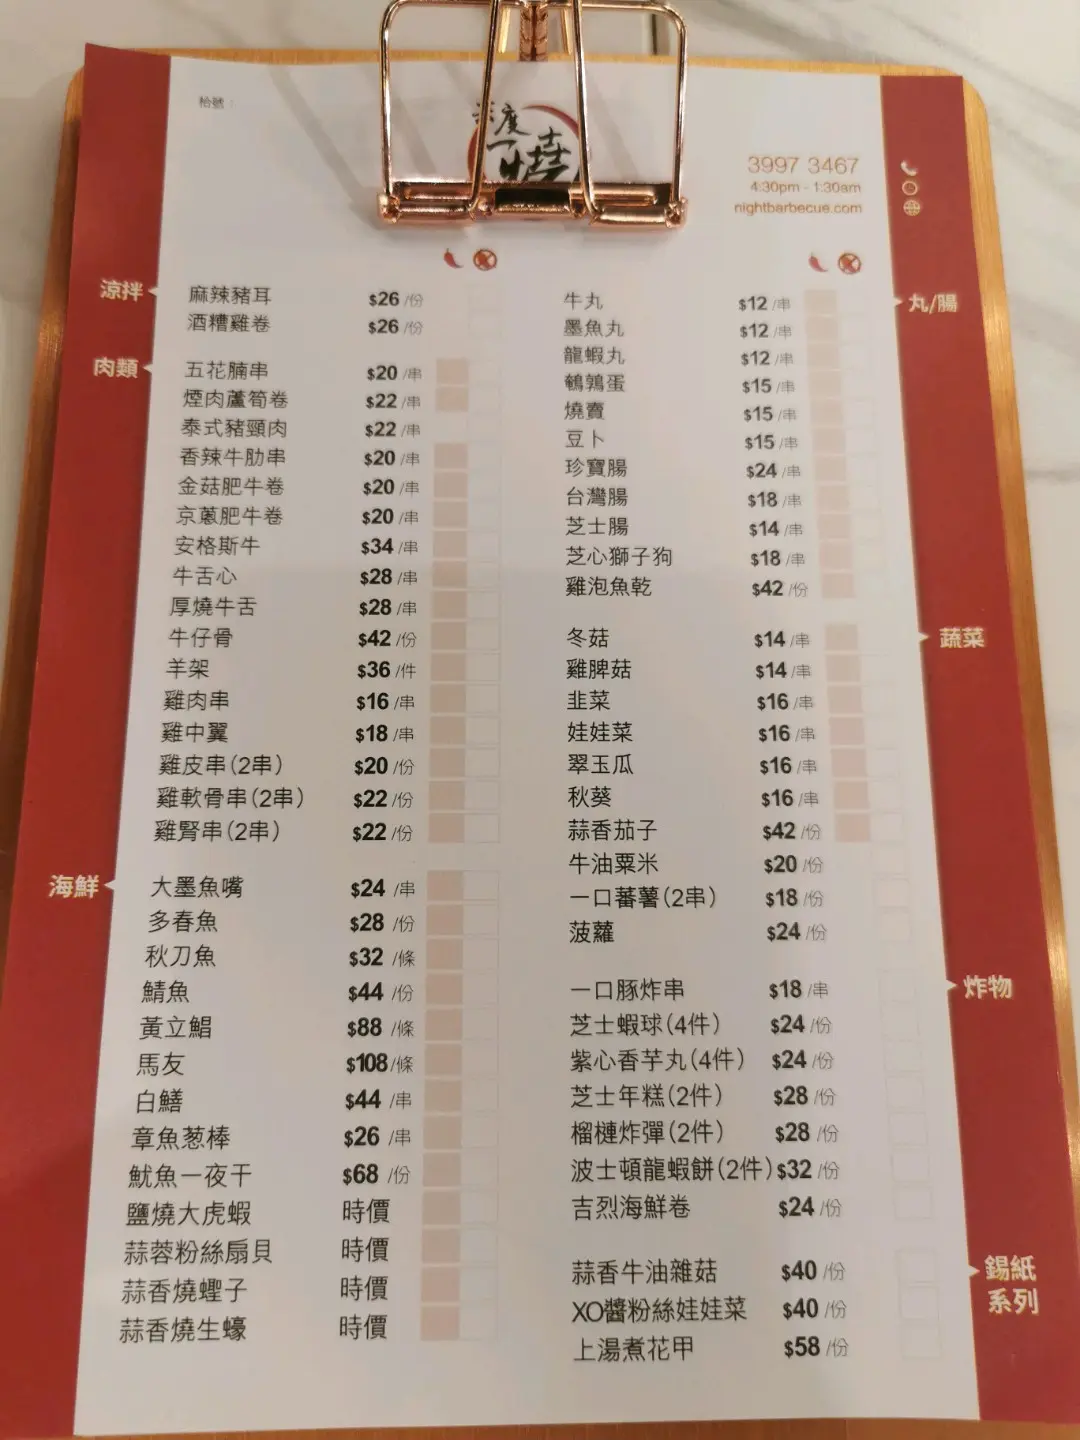 枱號：
度
燒
3997 3467
4:30pm - 1:30am
nightbarbecue.com
涼拌
麻辣豬耳 $26 /份
酒糟雞卷 $26 /份
肉類
五花腩串 $20 /串
煙肉蘆筍卷 $22 /串
泰式豬頸肉 $22 /串
香辣牛肋串 $20 /串
金菇肥牛卷 $20 /串
京蔥肥牛卷 $20 /串
安格斯牛 $34 /串
牛舌心 $28 /串
厚燒牛舌 $28 /串
牛仔骨 $42 /份
羊架 $36 /件
雞肉串 $16 /串
雞中翼 $18 /串
雞皮串(2串) $20 /份
雞軟骨串(2串) $22 /份
雞腎串(2串) $22 /份
海鮮
大墨魚嘴 $24 /串
多春魚 $28 /份
秋刀魚 $32 /條
鯖魚 $44 /份
黃立鯧 $88 /條
馬友 $108 /條
白鱔 $44 /串
章魚葱棒 $26 /串
魷魚一夜干 $68 /份
鹽燒大虎蝦 時價
蒜蓉粉絲扇貝 時價
蒜香燒蟶子 時價
蒜香燒生蠔 時價
丸/腸
牛丸 $12 /串
墨魚丸 $12 /串
龍蝦丸 $12 /串
鵪鶉蛋 $15 /串
燒賣 $15 /串
豆卜 $15 /串
珍寶腸 $24 /串
台灣腸 $18 /串
芝士腸 $14 /串
芝心獅子狗 $18 /串
雞泡魚乾 $42 /份
蔬菜
冬菇 $14 /串
雞脾菇 $14 /串
韭菜 $16 /串
娃娃菜 $16 /串
翠玉瓜 $16 /串
秋葵 $16 /串
蒜香茄子 $42 /份
牛油粟米 $20 /份
一口蕃薯(2串) $18 /份
菠蘿 $24 /份
炸物
一口豚炸串 $18 /串
芝士蝦球(4件) $24 /份
紫心香芋丸(4件) $24 /份
芝士年糕(2件) $28 /份
榴槤炸彈(2件) $28 /份
波士頓龍蝦餅(2件) $32 /份
吉烈海鮮卷 $24 /份
錫紙
系列
蒜香牛油雜菇 $40 /份
XO醬粉絲娃娃菜 $40 /份
上湯煮花甲 $58 /份